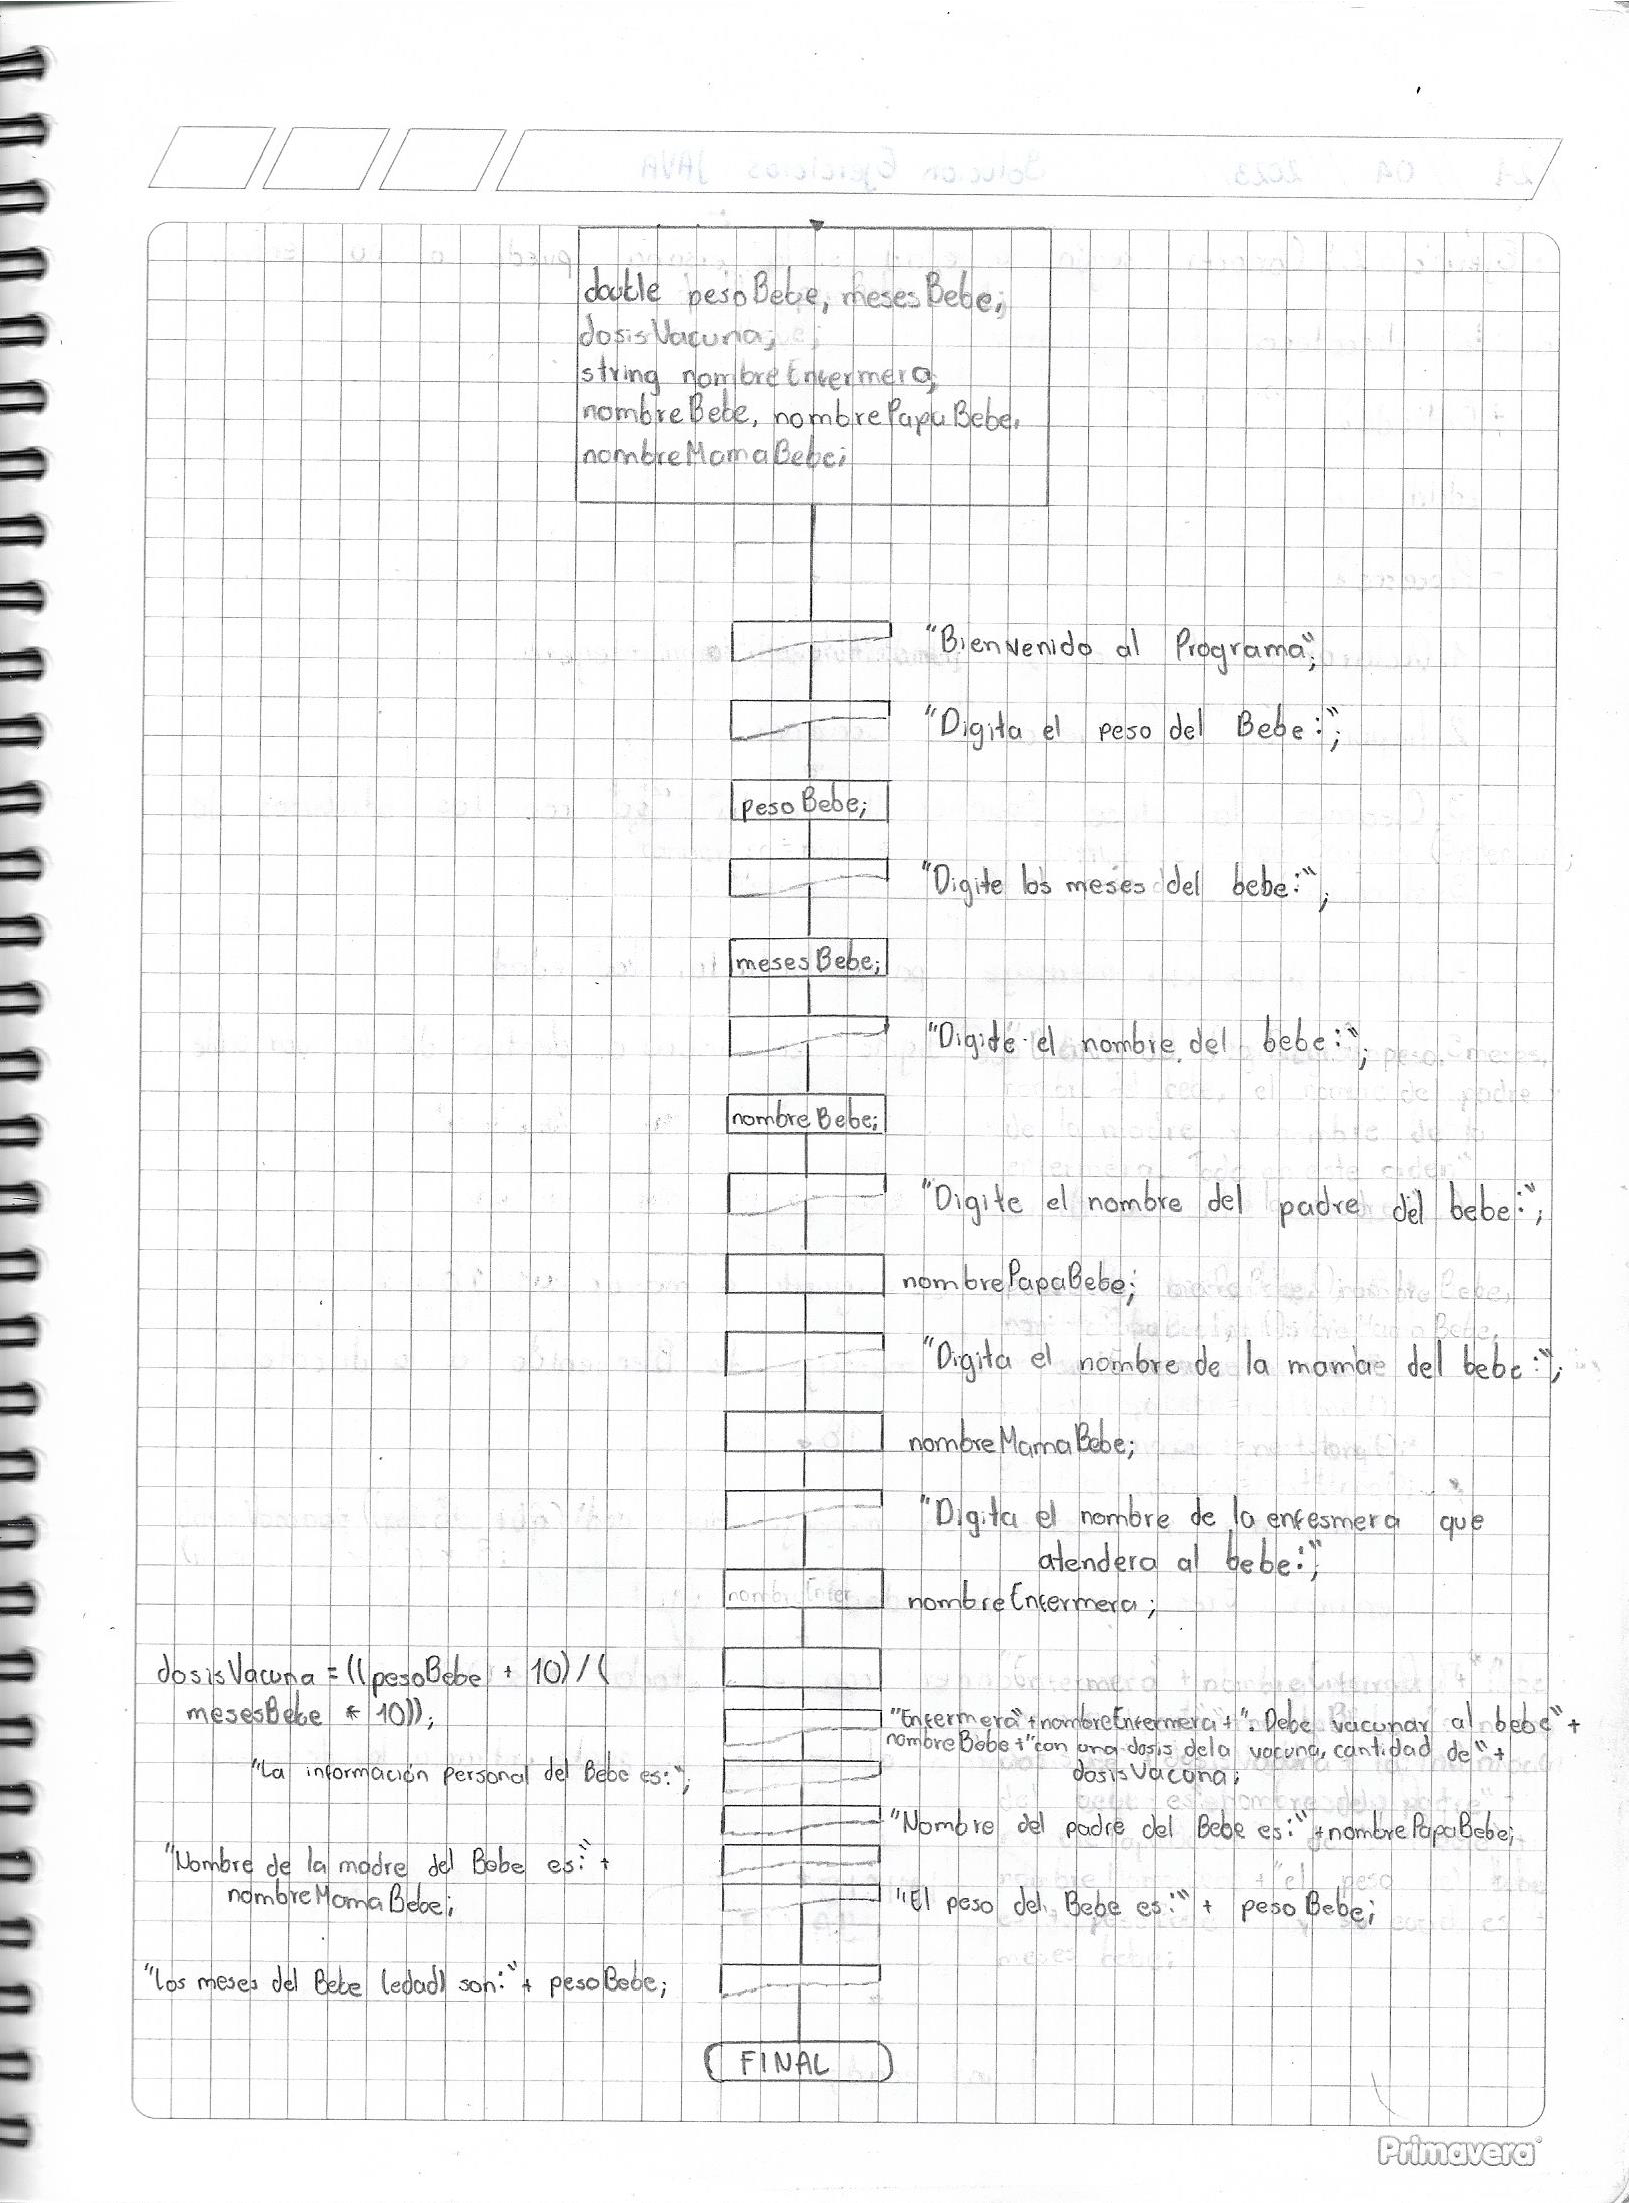 double pesoBebe, mesesBebe;
dosisVacuna;
string nombreEnfermera;
nombreBebe, nombrePapaBebe,
nombreMamaBebe;
"Bienvenido al Programa";
"Digita el peso del Bebe:";
pesoBebe;
"Digite los meses del bebe:";
mesesBebe;
"Digite el nombre del bebe:";
nombreBebe;
"Digite el nombre del padre del bebe:";
nombrePapaBebe;
"Digita el nombre de la mamae del bebe:";
nombreMamaBebe;
"Digita el nombre de la enfesmera que
atendera al bebe:";
nombreEnfermera;
dosisVacuna = ((pesoBebe + 10) / (
mesesBebe * 10));
"Enfermera"+nombreEnfermera+". Debe vacunar al bebe"+
nombreBebe+"con una dosis dela vacuna, cantidad de"+
dosisVacuna;
"La información personal del Bebe es:";
"Nombre del padre del Bebe es:"+nombrePapaBebe;
"Nombre de la madre del Bebe es:"+
nombreMamaBebe;
"El peso del Bebe es:"+ pesoBebe;
"los meses del Bebe (edad) son:"+ pesoBebe;
FINAL
Primavera